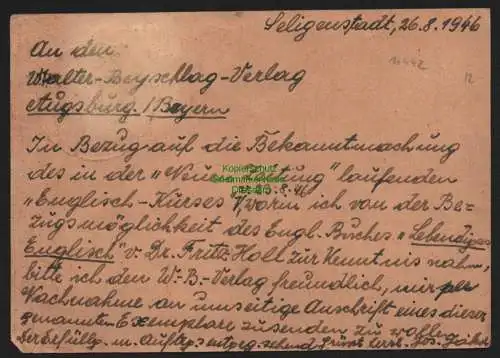 Seligenstadt, 26.8.1946
An den
Walter-Beyschlag-Verlag
Augsburg / Bayern
In Bezug auf die Bekanntmachung
des in der "Neuen Zeitung" laufenden
"Englisch-Kurses", worin ich von der Be-
zugsmöglichkeit des Engl. Buches "Lebendiges
Englisch" v. Dr. Fritz Holl zur Kenntnis nahm,
bitte ich den W.-B.-Verlag freundlich, mir per
Nachnahme an umseitige Anschrift eines dieser
genannten Exemplare zusenden zu wollen.
Der gefällg. m. Auftags entgeg. sehend